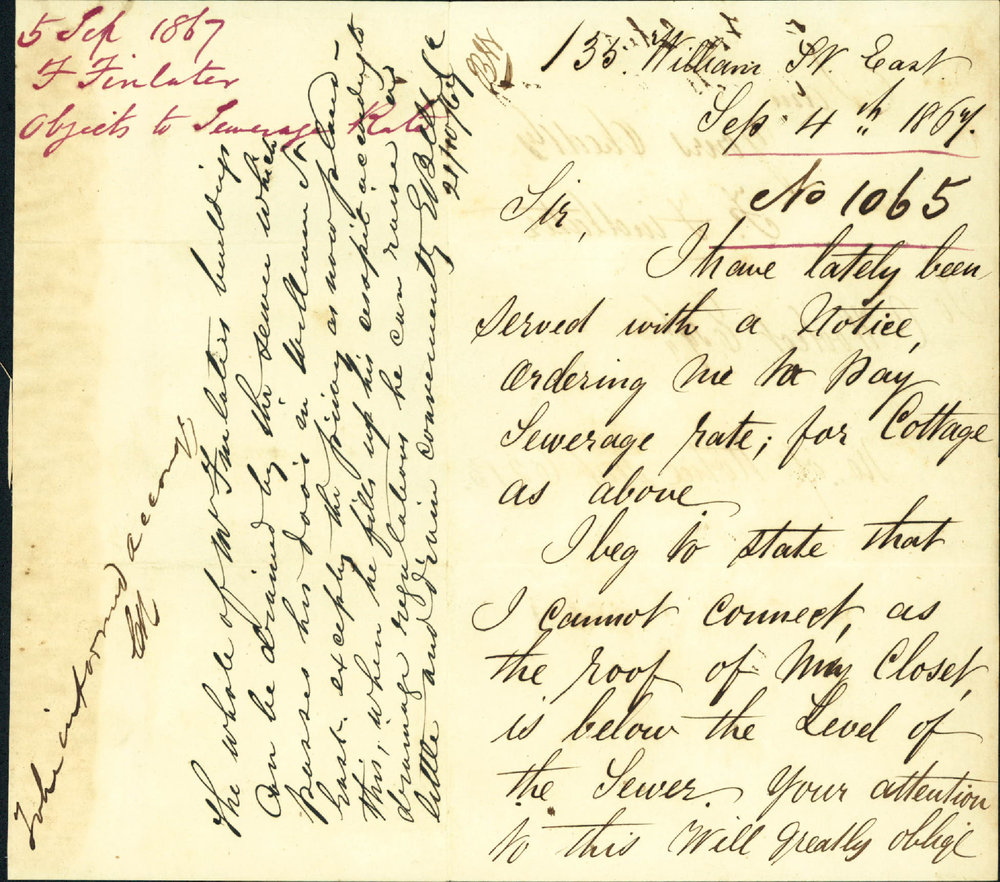 5 Sep 1867
F Finlater
Objects to Sewerage Rate
To be informed accong
The whole of Mr Finlaters buildings
can be drained by the sewer which
passes his door in William St
East. excepting the privy as now placed
this, when he fills up his cesspit according to
drainage regulations he can raise
little and drain conveniently E Bell
21/10/67
135. William St. East
Sep 4th 1867.
No 1065
Sir,
I have lately been
served with a Notice,
Ordering me to pay
Sewerage rate; for Cottage
as above
I beg to state that
I cannot connect, as
the roof of my Closet,
is below the Level of
the Sewer. Your attention
to this Will greatly oblige